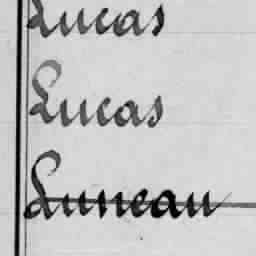 Lucas
Lucas
Luneau